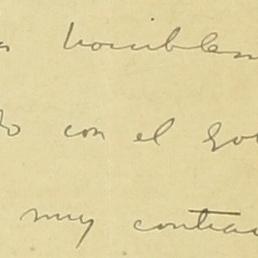 horriblem
con el go
muy contra